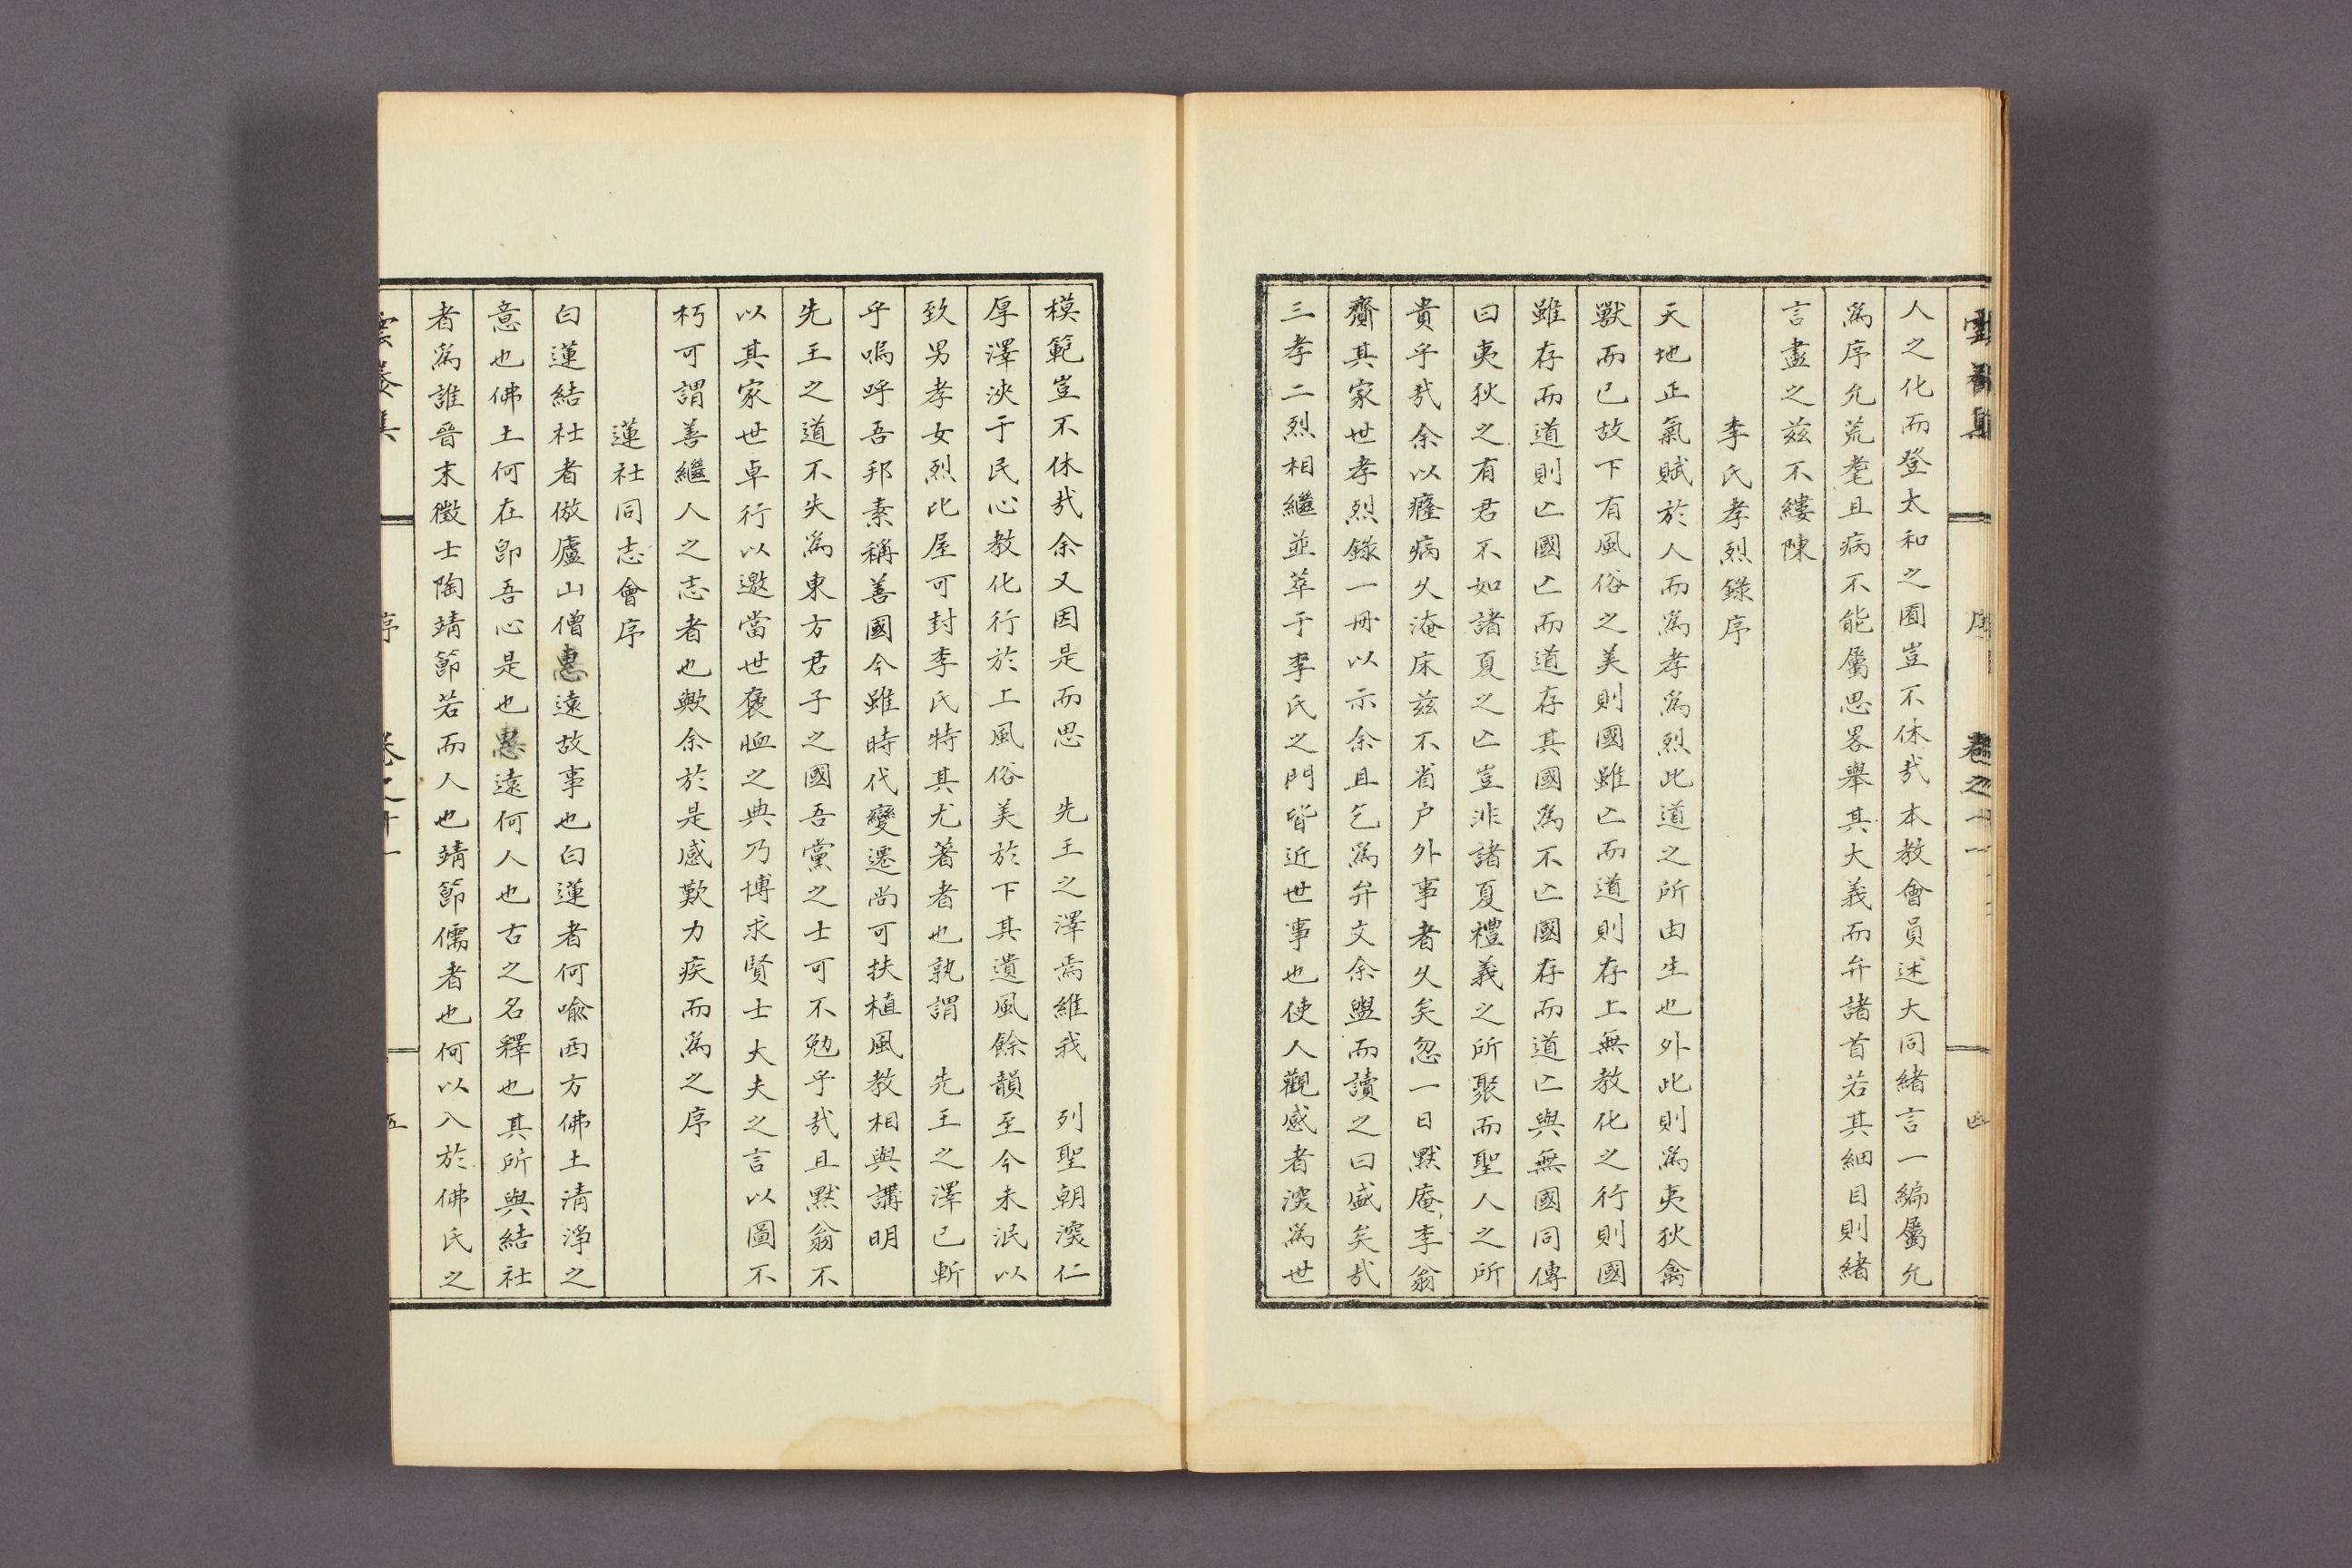 人之化而登太和之囿豈不休哉本教會員述大同緖言一編屬允
爲序允荒耄且病不能屬思畧擧其大義而弁諸首若其細目則緖
言盡之茲不縷陳
李氏孝烈錄序
天地正氣賦於人而爲孝爲烈此道之所由生也外此則爲夷狄禽
獸而已故下有風俗之美則國雖亡而道則存上無教化之行則國
雖存而道則亡國亡而道存其國爲不亡國存而道亡與無國同傳
曰夷狄之有君不如諸夏之亡豈非諸夏禮義之所聚而聖人之所
貴乎哉余以癃病久淹床茲不省戶外事者久矣忽一日默庵李翁
齎其家世孝烈錄一冊以示余且乞爲弁文余盥而讀之曰盛矣哉
三孝二烈相繼並萃于李氏之門皆近世事也使人觀感者深爲世
模範豈不休哉余又因是而思 先王之澤焉維我 列聖朝深仁
厚澤浹于民心教化行於上風俗美於下其遺風餘韻至今未泯以
致男孝女烈比屋可封李氏特其尤著者也孰謂 先王之澤已斬
乎嗚呼吾邦素稱善國今雖時代變遷尚可扶植風教相與講明
先王之道不失爲東方君子之國吾黨之士可不勉乎哉且默翁不
以其家世卓行以邀當世褒衈之典乃博求賢士大夫之言以圖不
朽可謂善繼人之志者也歟余於是感歎力疾而爲之序
蓮社同志會序
白蓮結社者倣廬山僧惠遠故事也白蓮者何喩西方佛土淸淨之
意也佛土何在卽吾心是也惠遠何人也古之名釋也其所與結社
者爲誰晉末徵士陶靖節若而人也靖節儒者也何以入於佛氏之
序
五